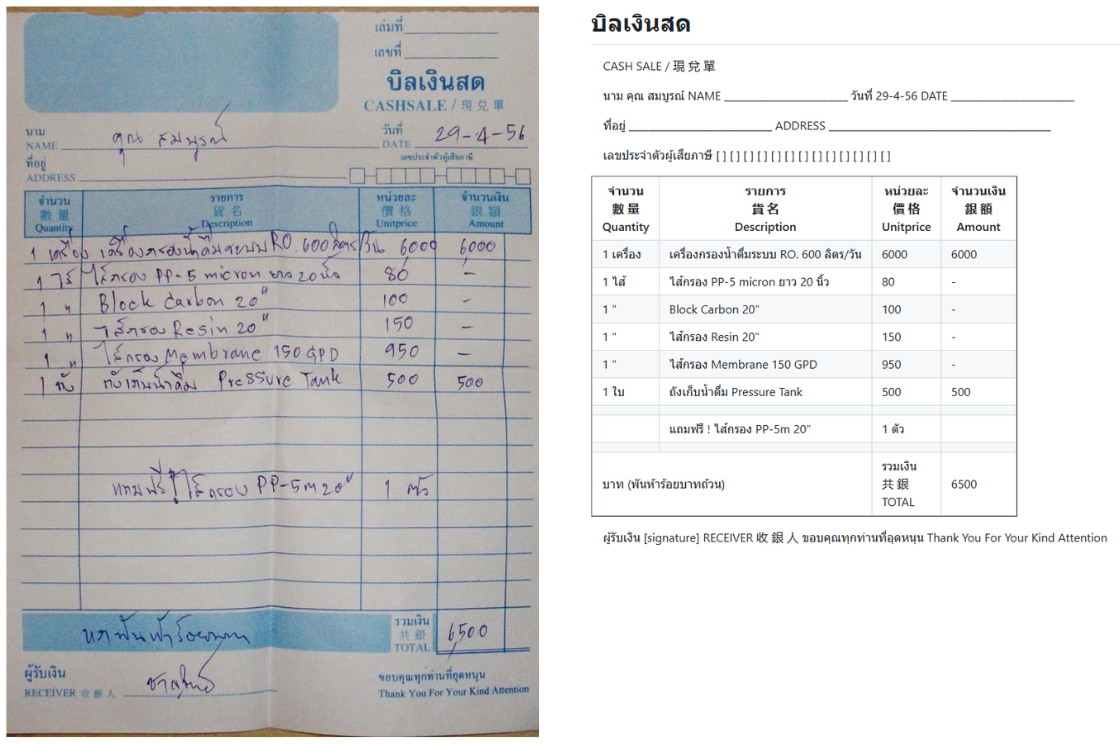 เล่มที่
เลขที่
บิลเงินสด
CASHSALE / 現 兌 單
นาม
NAME คุณ สมบูรณ์
วันที่
DATE 29-4-56
ที่อยู่
ADDRESS
เลขประจำตัวผู้เสียภาษี
จำนวน รายการ หน่วยละ จำนวนเงิน
數 量 貨 名 價 格 銀 額
Quantity Description Unitprice Amount
1 เครื่อง เครื่องกรองน้ำดื่มระบบ RO. 600 ลิตร/วัน 6000 6000
1 ไส้ ไส้กรอง PP-5 micron ยาว 20 นิ้ว 80 -
1 " Block Carbon 20" 100 -
1 " ไส้กรอง Resin 20" 150 -
1 " ไส้กรอง Membrane 150 GPD 950 -
1 ถัง ถังเก็บน้ำดื่ม Pressure Tank 500 500
แถมฟรี ! ไส้กรอง PP-5m 20" 1 ตัว
หกพันห้าร้อยบาท
รวมเงิน
共 銀
TOTAL 6500
ผู้รับเงิน
RECEIVER 收 銀 人
ขอบคุณทุกท่านที่อุดหนุน
Thank You For Your Kind Attention
บิลเงินสด
CASH SALE / 現 兌 單
นาม คุณ สมบูรณ์ NAME ____________________ วันที่ 29-4-56 DATE ____________________
ที่อยู่ ____________________ ADDRESS ____________________
เลขประจำตัวผู้เสียภาษี [ ] [ ] [ ] [ ] [ ] [ ] [ ] [ ] [ ] [ ] [ ] [ ] [ ]
จำนวน รายการ หน่วยละ จำนวนเงิน
數 量 貨 名 價 格 銀 額
Quantity Description Unitprice Amount
1 เครื่อง เครื่องกรองน้ำดื่มระบบ RO. 600 ลิตร/วัน 6000 6000
1 ไส้ ไส้กรอง PP-5 micron ยาว 20 นิ้ว 80 -
1 " Block Carbon 20" 100 -
1 " ไส้กรอง Resin 20" 150 -
1 " ไส้กรอง Membrane 150 GPD 950 -
1 ใบ ถังเก็บน้ำดื่ม Pressure Tank 500 500
แถมฟรี ! ไส้กรอง PP-5m 20" 1 ตัว
บาท (พันห้าร้อยบาทถ้วน)
รวมเงิน
共 銀
TOTAL
6500
ผู้รับเงิน [signature] RECEIVER 收 銀 人 ขอบคุณทุกท่านที่อุดหนุน Thank You For Your Kind Attention